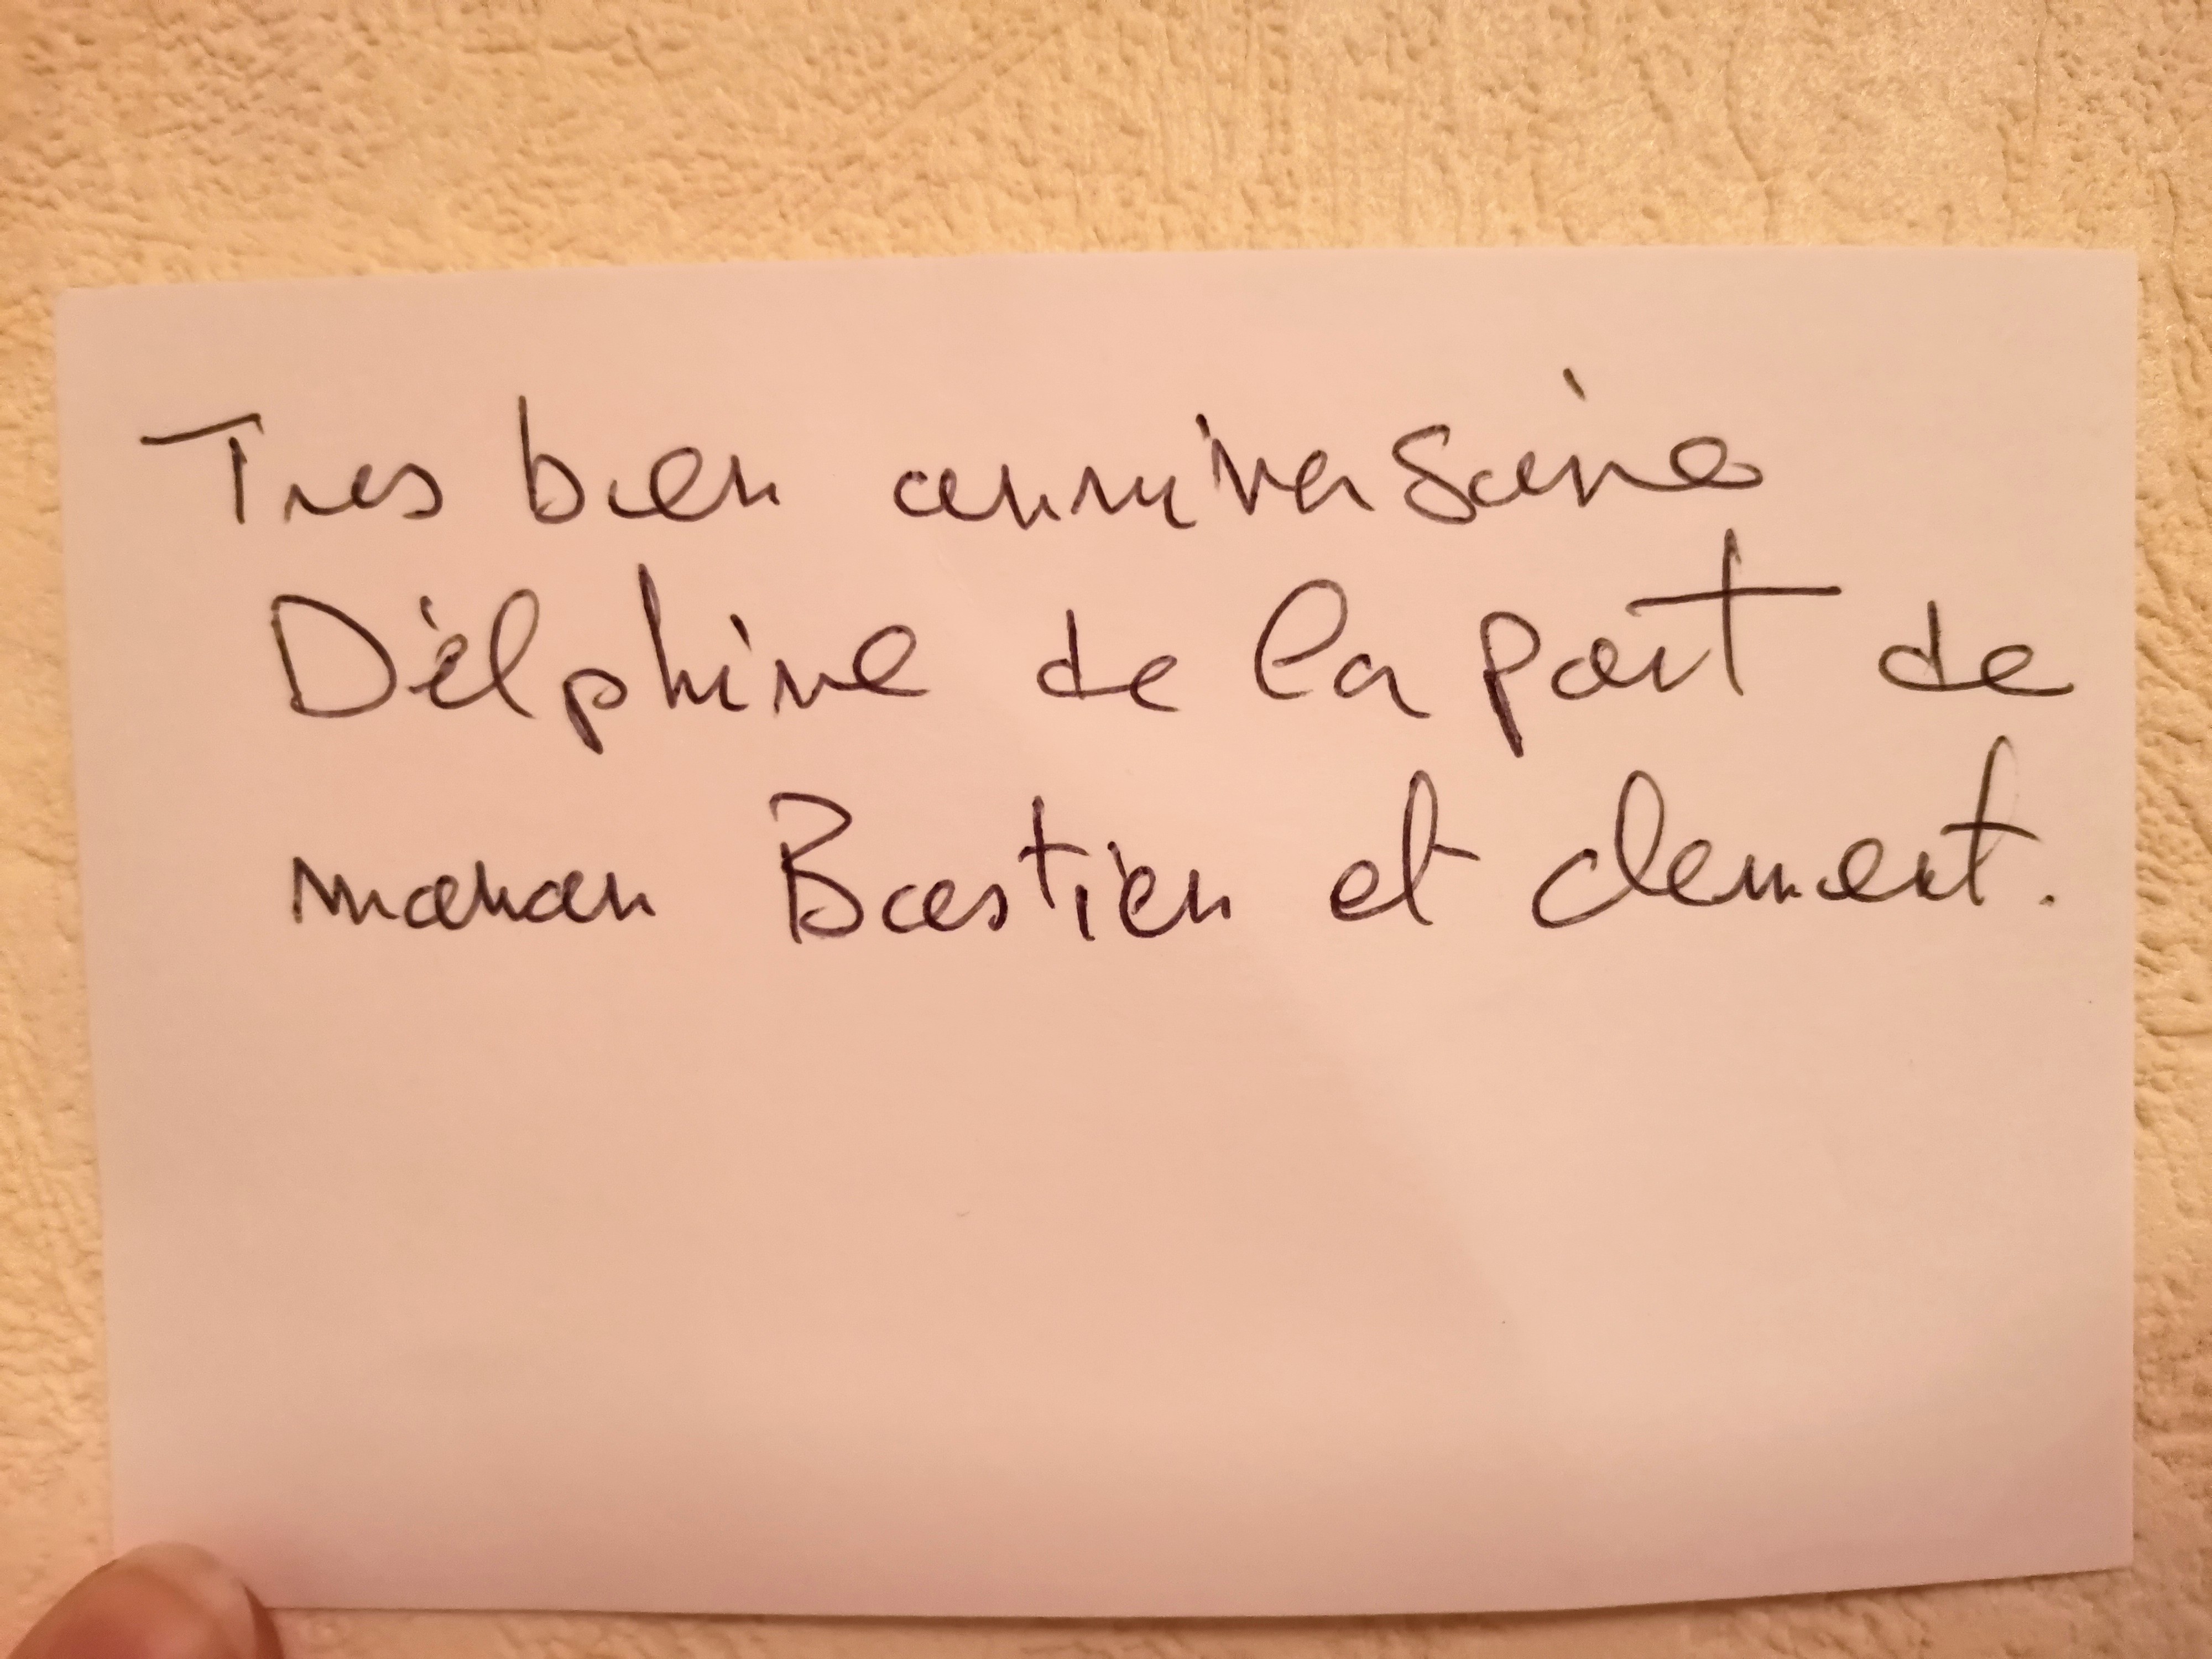 Tres bien anniversaire
Délphine de la part de
maman Bastien et clement.